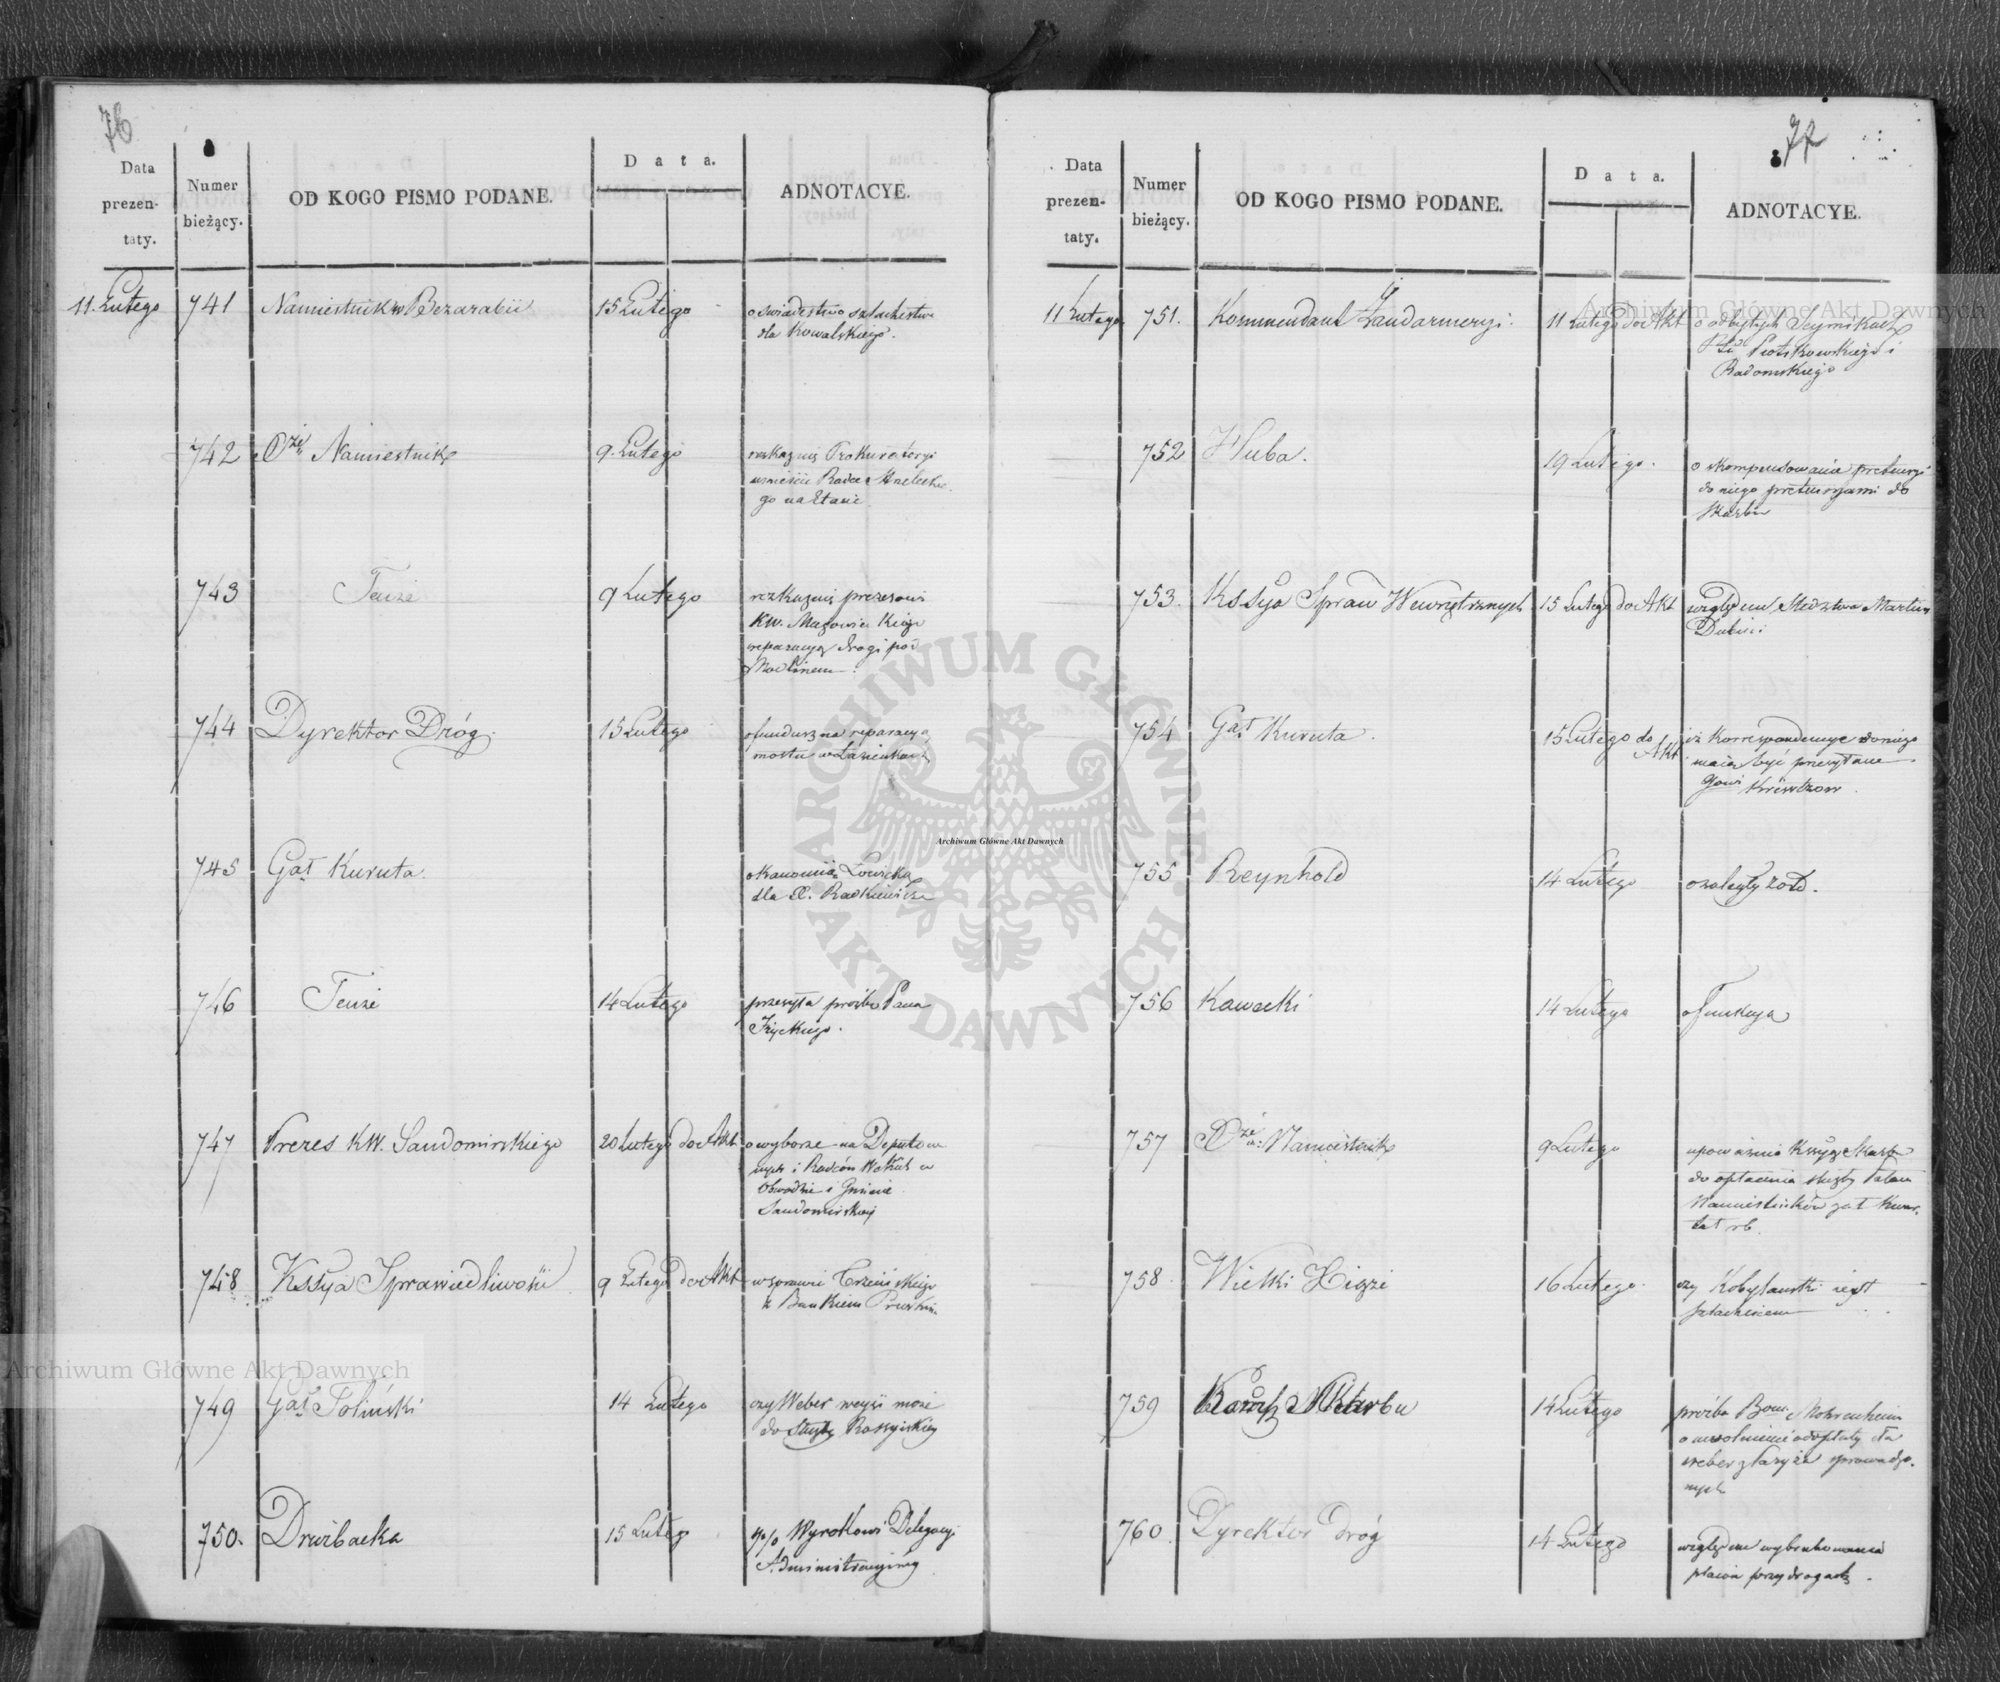 76
Data
prezen-
taty.
Numer
bieżący.
OD KOGO PISMO PODANE.
Data.
ADNOTACYE.
11. Lutego 741 Namiestnik w Bezarabii 15 Lutego o świadectwo szlachectwa
dla Kowalskiego.
742 Namiestnik 9. Lutego
Prokuratoryi
umieścić Radcę
go na Etacie
743 Tenże 9 Lutego rozkazuie prezesowi
KW. Mazowieckiego
reparacyą drogi pod
Modlinem
744 Dyrektor Dróg. 15 Lutego o fundusz na reparacyą
mostu w Łazienkach
745 Gał Kuruta.
o kanonią Łowicką
dla X. Radkiewicza
746 Tenże 14 Lutego przesyła prośbę Pana
Iżyckiego.
747 Prezes KW. Sandomirskiego 20 Lutego do Akt o wyborze na Deputowa
nych i Radców Wdzkich w
Obwodzie i Gminie
Sandomirskiej
748 Kssya Sprawiedliwości 9 Lutego do Akt w sprawie
z Bankiem Pruskim
749 Gał Toliński 14 Lutego czy Weber wejść może
do służby Rossyiskiey
750. Druibacka 15 Lutego
Wyrokowi Delegacyi
Administracyiney
77
Data
prezen-
taty.
Numer
bieżący.
OD KOGO PISMO PODANE.
Data.
ADNOTACYE.
11 Lutego 751. Kommendant Żandarmeryi. 11 Lutego do Akt o odbytych Seymikach
Ptu Piotrkowskiego i
Radomskiego
752 Huba. 19 Lutego. o skompensowanie pretensyi
do niego pretensyami do
Skarbu
753. Kssya Spraw Wewnętrznych 15 Lutego do Akt względem śledztwa Marcina
754 Gał Kuruta. 15 Lutego do Akt iż korrespondencye do niego
maią być przesyłane
Gowi Kriwtzow.
755 Reynhold 14 Lutego o zaległy żołd.
756 Kawecki 14 Lutego o funkcyą
757 Namiestnik 9 Lutego upoważnia Kssyą Skarbu
do opłacenia służby Pałacu
Namiestników za 1 Kwar-
tał rb.
758 Wielki Xiąże 16 Lutego. czy Kobylański iest
szlachcicem
759 Skarbu 14 Lutego prośba Mohrenheim
o uwolnienie od opłaty cła
sreber z Paryża sprowadzo-
nych
760. Dyrektor Dróg 14 Lutego względem wybrukowania
placów przy drogach.
Archiwum Główne Akt Dawnych
ARCHIWUM GŁÓWNE
AKT DAWNYCH
Archiwum Główne Akt Dawnych
Archiwum Główne Akt Dawnych